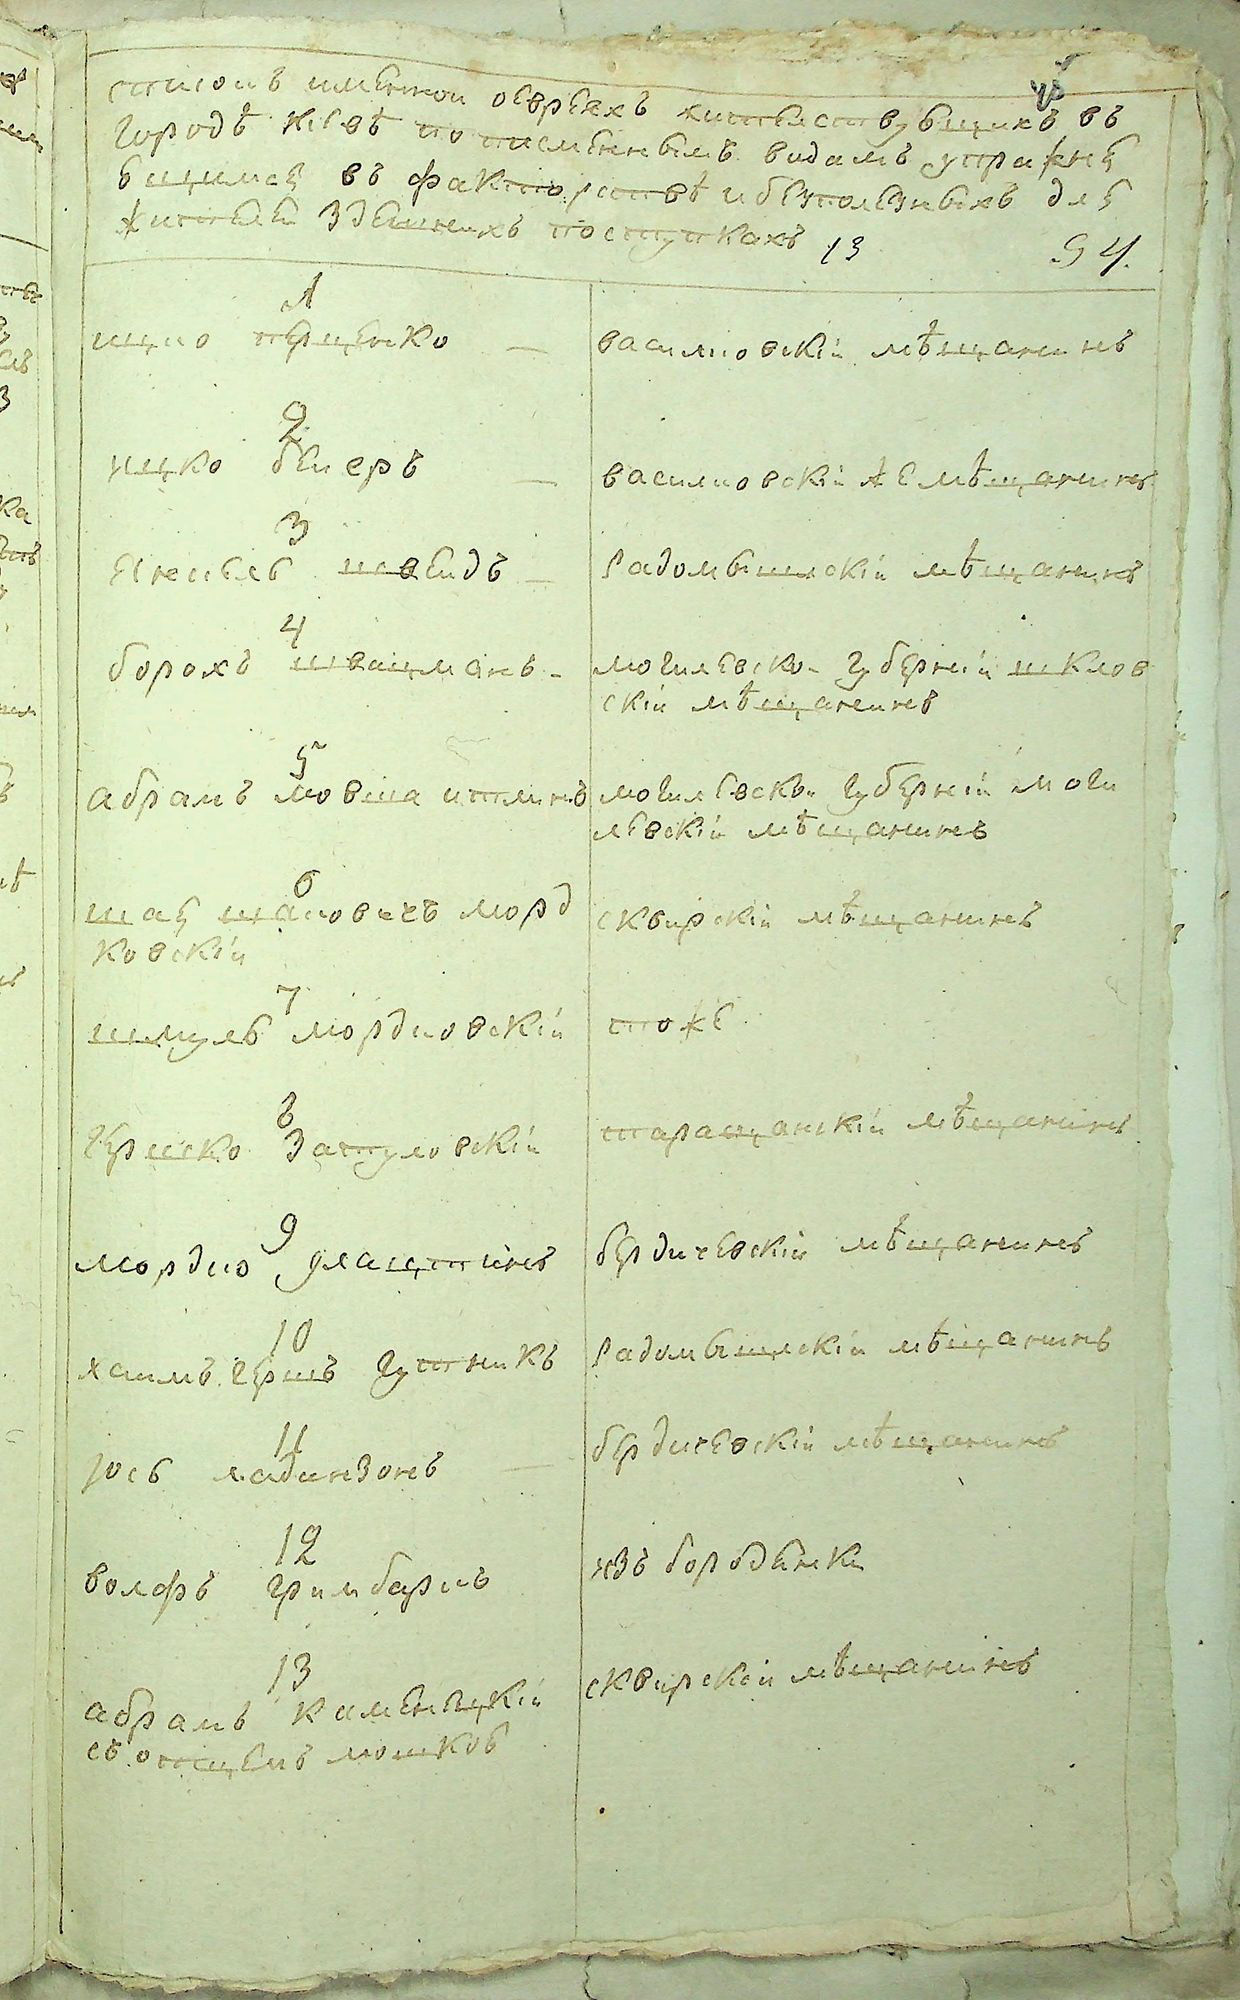 списокъ именной оевреяхъ жительствующихъ въ
городѣ кіевѣ по писменнымъ видамъ упражня
ющимся въ факторствѣ и безполезныхъ для
жителей здешнихъ поступкахъ 13
54.
1
ицко — василковскій мѣщанинъ
2
ицко — василковскій же мѣщанинъ
3
швейдъ — радомышлскій мѣщанинъ
4
борохъ швацманъ - могилевско- губерніи шклов
скій мѣщанинъ
5
абрамъ мовша могилевской губерніи моги
левскій мѣщанинъ
6
шая морд
ковскій
сквирскій мѣщанинъ
7
шмуль мордковскій тоже
8
гершко заслуловскій таращанскій мѣщанинъ
9
мордко бердичевскій мѣщанинъ
10
хаимъ гершъ гутникъ радомышлскій мѣщанинъ
11
іось — бердичевскій мѣщанинъ
12
волфъ гримбаркъ изъ бородянки
13
абрамъ каменецкій
съ отцемъ мошков
сквирскій мѣщанинъ